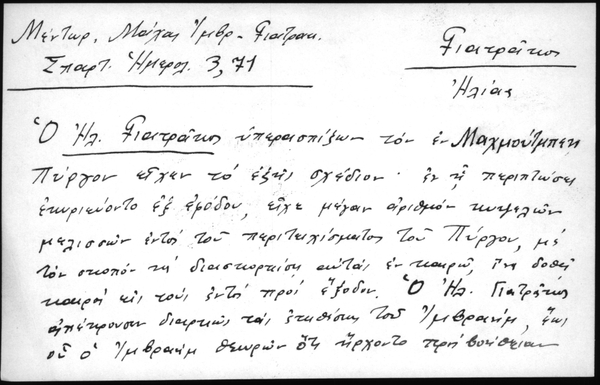 Μέντωρ, Μάχαι Ἰμβρ - Γιατρακ.
Σπαρτ. Ἡμερολ. 3, 71
Γιατρᾶκος
Ἠλίας
Ὁ Ἠλ. Γιατρᾶκος ὑπερασπίζων τὸν ἐν Μαχμούτμπεη
Πύργον εἶχεν τὸ ἑξῆς σχέδιον· ἐν ᾗ περιπτώσει
ἐκυριεύοντο ἐξ ἐφόδου, εἶχε μέγαν ἀριθμὸν κυψελῶν
μελισσῶν ἐντὸς τοῦ περιτειχίσματος τοῦ Πύργου, μὲ
τὸν σκοπὸν νὰ διασκορπίσῃ αὐτὰς ἐν καιρῷ, ἵνα δοθῇ
καιρὸς εἰς τοὺς ἐντὸς πρὸς ἔξοδον. Ὁ Ἠλ. Γιατρᾶκος
ἀπέκρουσεν διαρκῶς τὰς ἐπιθέσεις τοῦ Ἰμβραήμ, ἕως
οὗ ὁ Ἰμβραήμ θεωρῶν ὅτι ἤρχοντο πρὸς βοήθειαν